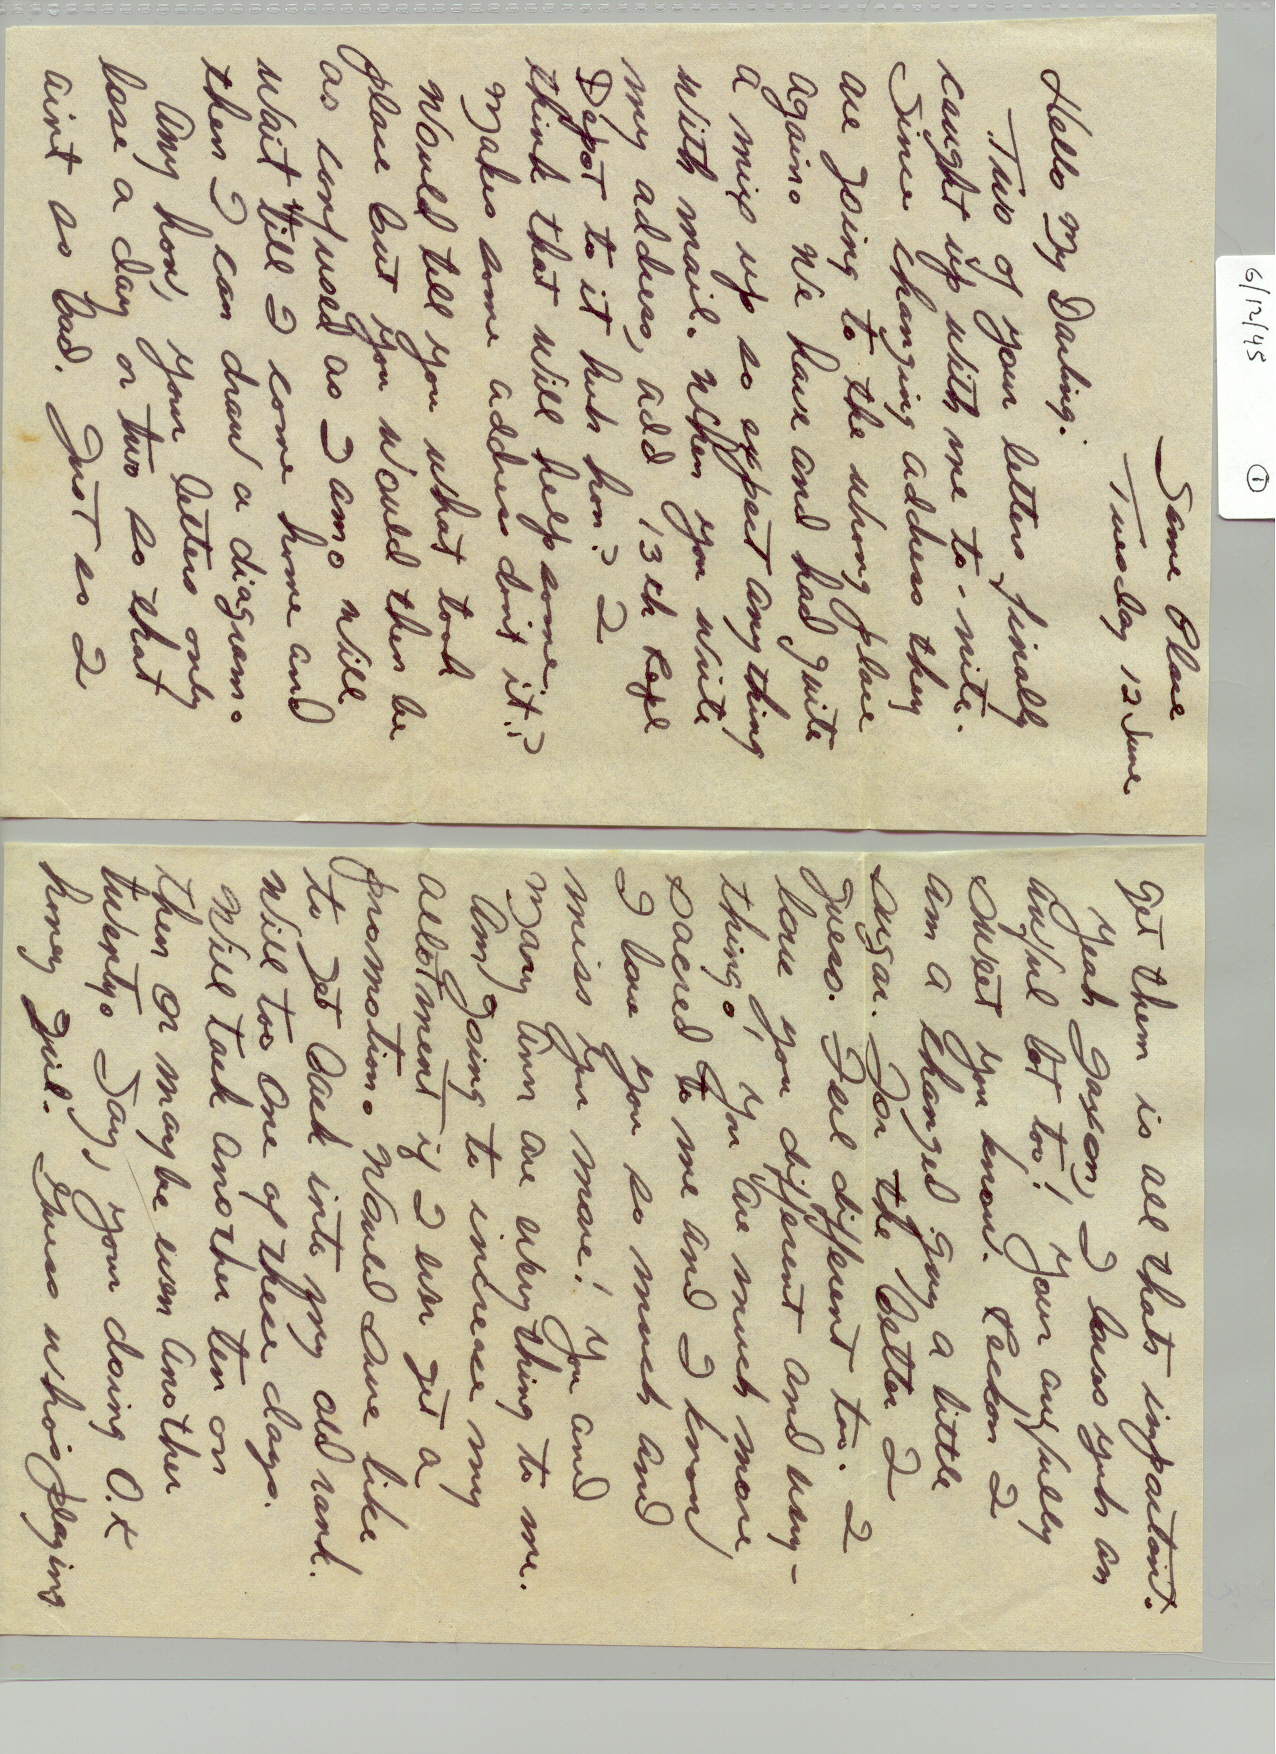 6/12/45 1
Same Place
Tuesday 12 June
Hello my Darling:
Two of your letters finally
caught up with me to-nite.
Since changing address they
are going to the wrong place
again. We have and had quite
a mix up so expect anything
with mail. When you write
my address, add 13th Repl
Depot to it huh hon? I
think that will help some.
Makes some address don't it??
Would tell you what took
place but you would then be
as confused as I am. Will
wait till I come home and
then I can draw a diagram.
Any how, your letters only
lose a day or two so that
aint so bad. Just so I
get them is all thats important.
Yeah I luvs yuh an
awful lot too! Your awfully
sweet you know. Reckon I
am a changed guy a little
sugar. For the better I
guess. Feel different too. I
love you different and every-
thing. You are much more
sacred to me and I know
I love you so much and
miss you more! You and
Mary Ann are everything to me.
Am going to increase my
allotment if I ever get a
promotion. Would sure like
to get back into my old rank.
Will too one of these days.
Will tack another ten on
then or maybe even another
twenty. Say, your doing O.K
honey girl. Guess whos playing